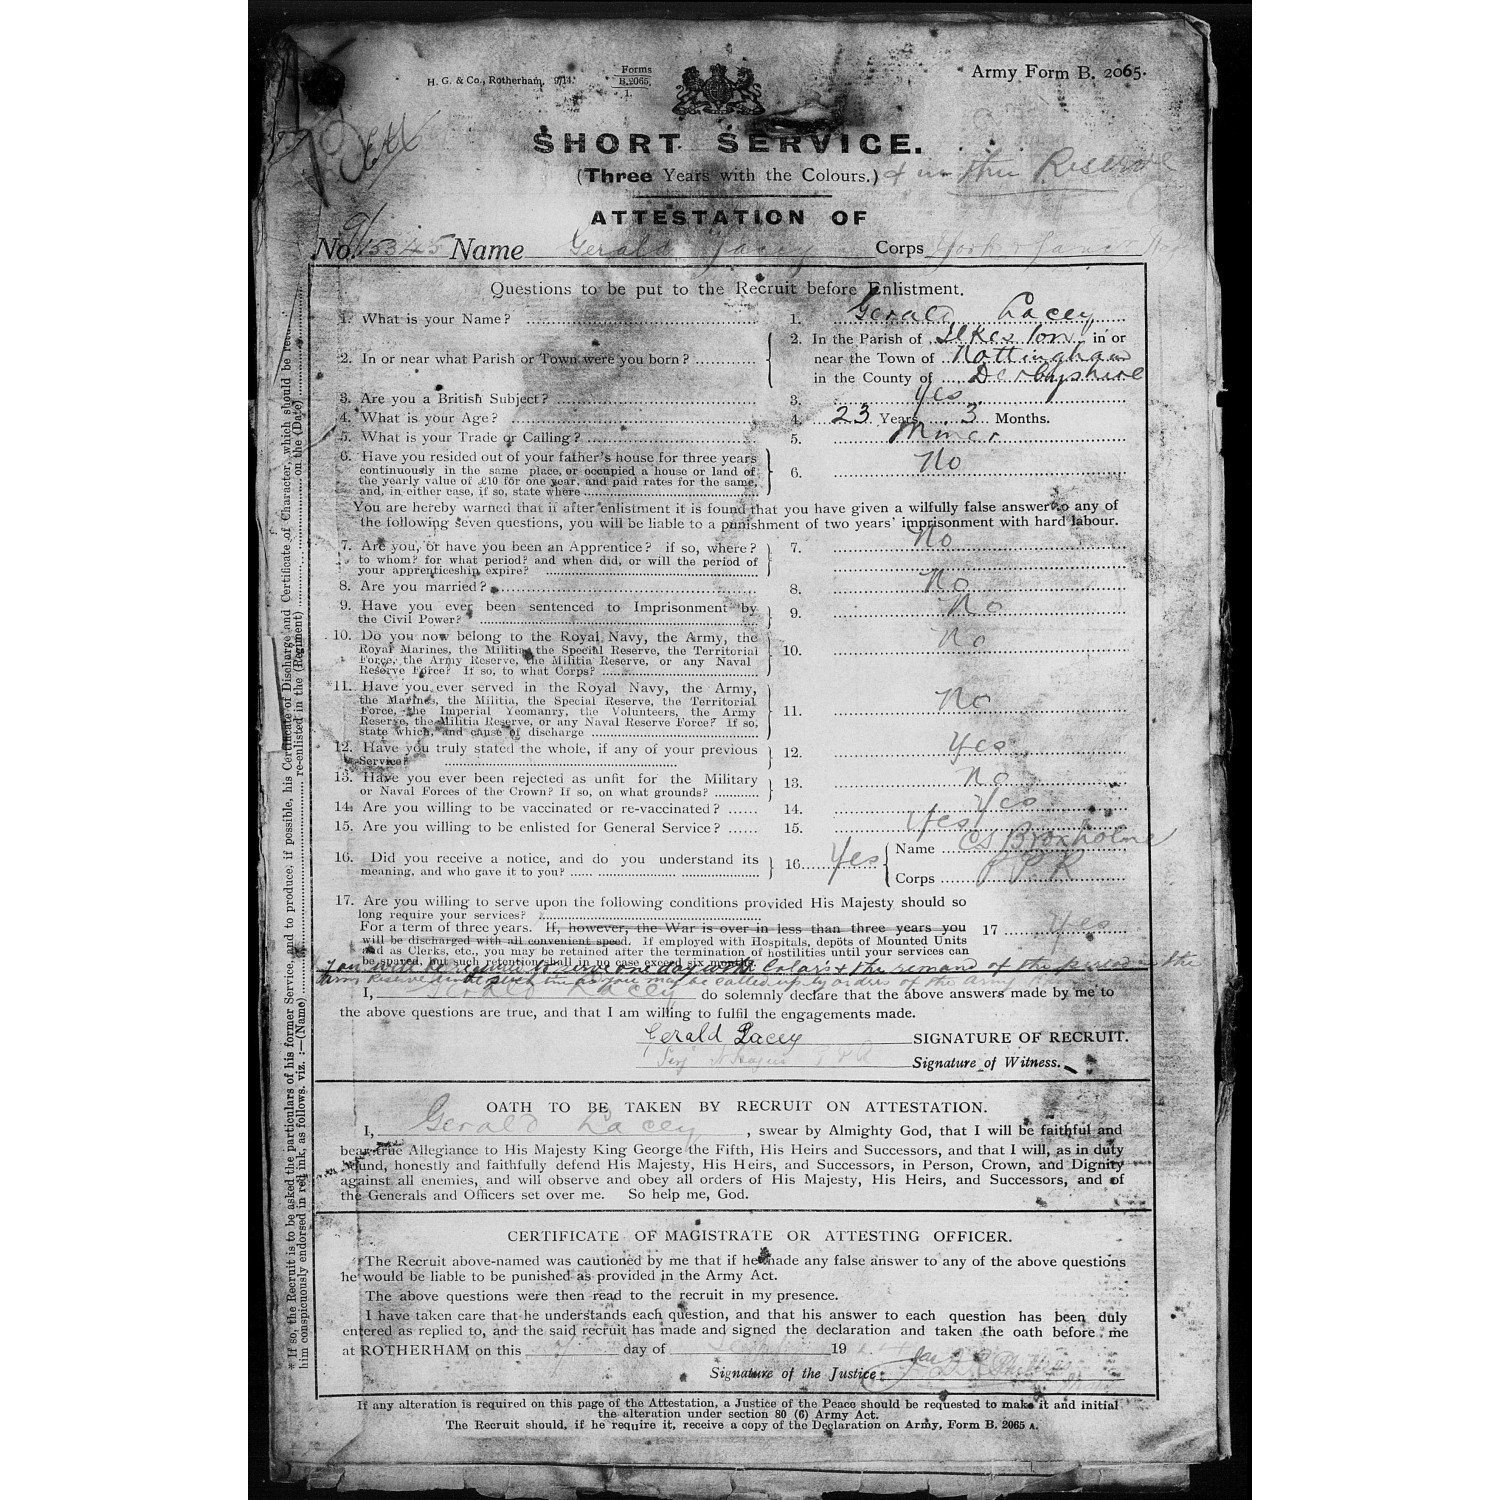 H. G. & Co., Rotherham, 9/14.
Forms
B.2065.
1.
Army Form B. 2065.
SHORT SERVICE.
(Three Years with the Colours.) & in the Reserve
ATTESTATION OF
No. 15345 Name Gerald Lacey Corps York & Lancs
Questions to be put to the Recruit before Enlistment.
1. What is your Name? 1. Gerald Lacey
2. In or near what Parish or Town were you born? 2. In the Parish of Ilkeston in or
near the Town of Nottingham
in the County of Derbyshire
3. Are you a British Subject? 3. Yes
4. What is your Age? 4. 23 Years 3 Months.
5. What is your Trade or Calling? 5. Miner
6. Have you resided out of your father's house for three years
continuously in the same place, or occupied a house or land of
the yearly value of £10 for one year, and paid rates for the same,
and, in either case, if so, state where 6. No
You are hereby warned that if after enlistment it is found that you have given a wilfully false answer to any of
the following seven questions, you will be liable to a punishment of two years' imprisonment with hard labour.
7. Are you, or have you been an Apprentice? if so, where?
to whom? for what period? and when did, or will the period of
your apprenticeship expire? 7. No
8. Are you married? 8. No
9. Have you ever been sentenced to Imprisonment by
the Civil Power? 9. No
10. Do you now belong to the Royal Navy, the Army, the
Royal Marines, the Militia, the Special Reserve, the Territorial
Force, the Army Reserve, the Militia Reserve, or any Naval
Reserve Force? If so, to what Corps? 10. No
*11. Have you ever served in the Royal Navy, the Army,
the Marines, the Militia, the Special Reserve, the Territorial
Force, the Imperial Yeomanry, the Volunteers, the Army
Reserve, the Militia Reserve, or any Naval Reserve Force? If so,
state which, and cause of discharge 11. No
12. Have you truly stated the whole, if any of your previous
Service? 12. Yes
13. Have you ever been rejected as unfit for the Military
or Naval Forces of the Crown? If so, on what grounds? 13. No
14. Are you willing to be vaccinated or re-vaccinated? 14. Yes
15. Are you willing to be enlisted for General Service? 15. Yes
16. Did you receive a notice, and do you understand its
meaning, and who gave it to you? 16. Yes Name Broxholme
Corps
17. Are you willing to serve upon the following conditions provided His Majesty should so
long require your services?
For a term of three years. If, however, the War is over in less than three years you 17 Yes
will be discharged with all convenient speed. If employed with Hospitals, depôts of Mounted Units
and as Clerks, etc., you may be retained after the termination of hostilities until your services can
be spared, but such retention shall in no case exceed six months.
You will be required to serve one day with Colors & the remand of the period in the
Army Reserve until such time as you may be called up by orders of the Army
I, Gerald Lacey do solemnly declare that the above answers made by me to
the above questions are true, and that I am willing to fulfil the engagements made.
Gerald Lacey SIGNATURE OF RECRUIT.
Signature of Witness.
OATH TO BE TAKEN BY RECRUIT ON ATTESTATION.
I, Gerald Lacey, swear by Almighty God, that I will be faithful and
bear true Allegiance to His Majesty King George the Fifth, His Heirs and Successors, and that I will, as in duty
bound, honestly and faithfully defend His Majesty, His Heirs, and Successors, in Person, Crown, and Dignity
against all enemies, and will observe and obey all orders of His Majesty, His Heirs, and Successors, and of
the Generals and Officers set over me. So help me, God.
CERTIFICATE OF MAGISTRATE OR ATTESTING OFFICER.
The Recruit above-named was cautioned by me that if he made any false answer to any of the above questions
he would be liable to be punished as provided in the Army Act.
The above questions were then read to the recruit in my presence.
I have taken care that he understands each question, and that his answer to each question has been duly
entered as replied to, and the said recruit has made and signed the declaration and taken the oath before me
at ROTHERHAM on this day of 19
Signature of the Justice
If any alteration is required on this page of the Attestation, a Justice of the Peace should be requested to make it and initial
the alteration under section 80 (6) Army Act.
The Recruit should, if he require it, receive a copy of the Declaration on Army Form B. 2065 A.
* If so, the Recruit is to be asked the particulars of his former Service, and to produce, if possible, his Certificate of Discharge and Certificate of Character, which should be
him conspicuously endorsed in red ink, as follows, viz. :—(Name) re-enlisted in the (Regiment) on the (Date)